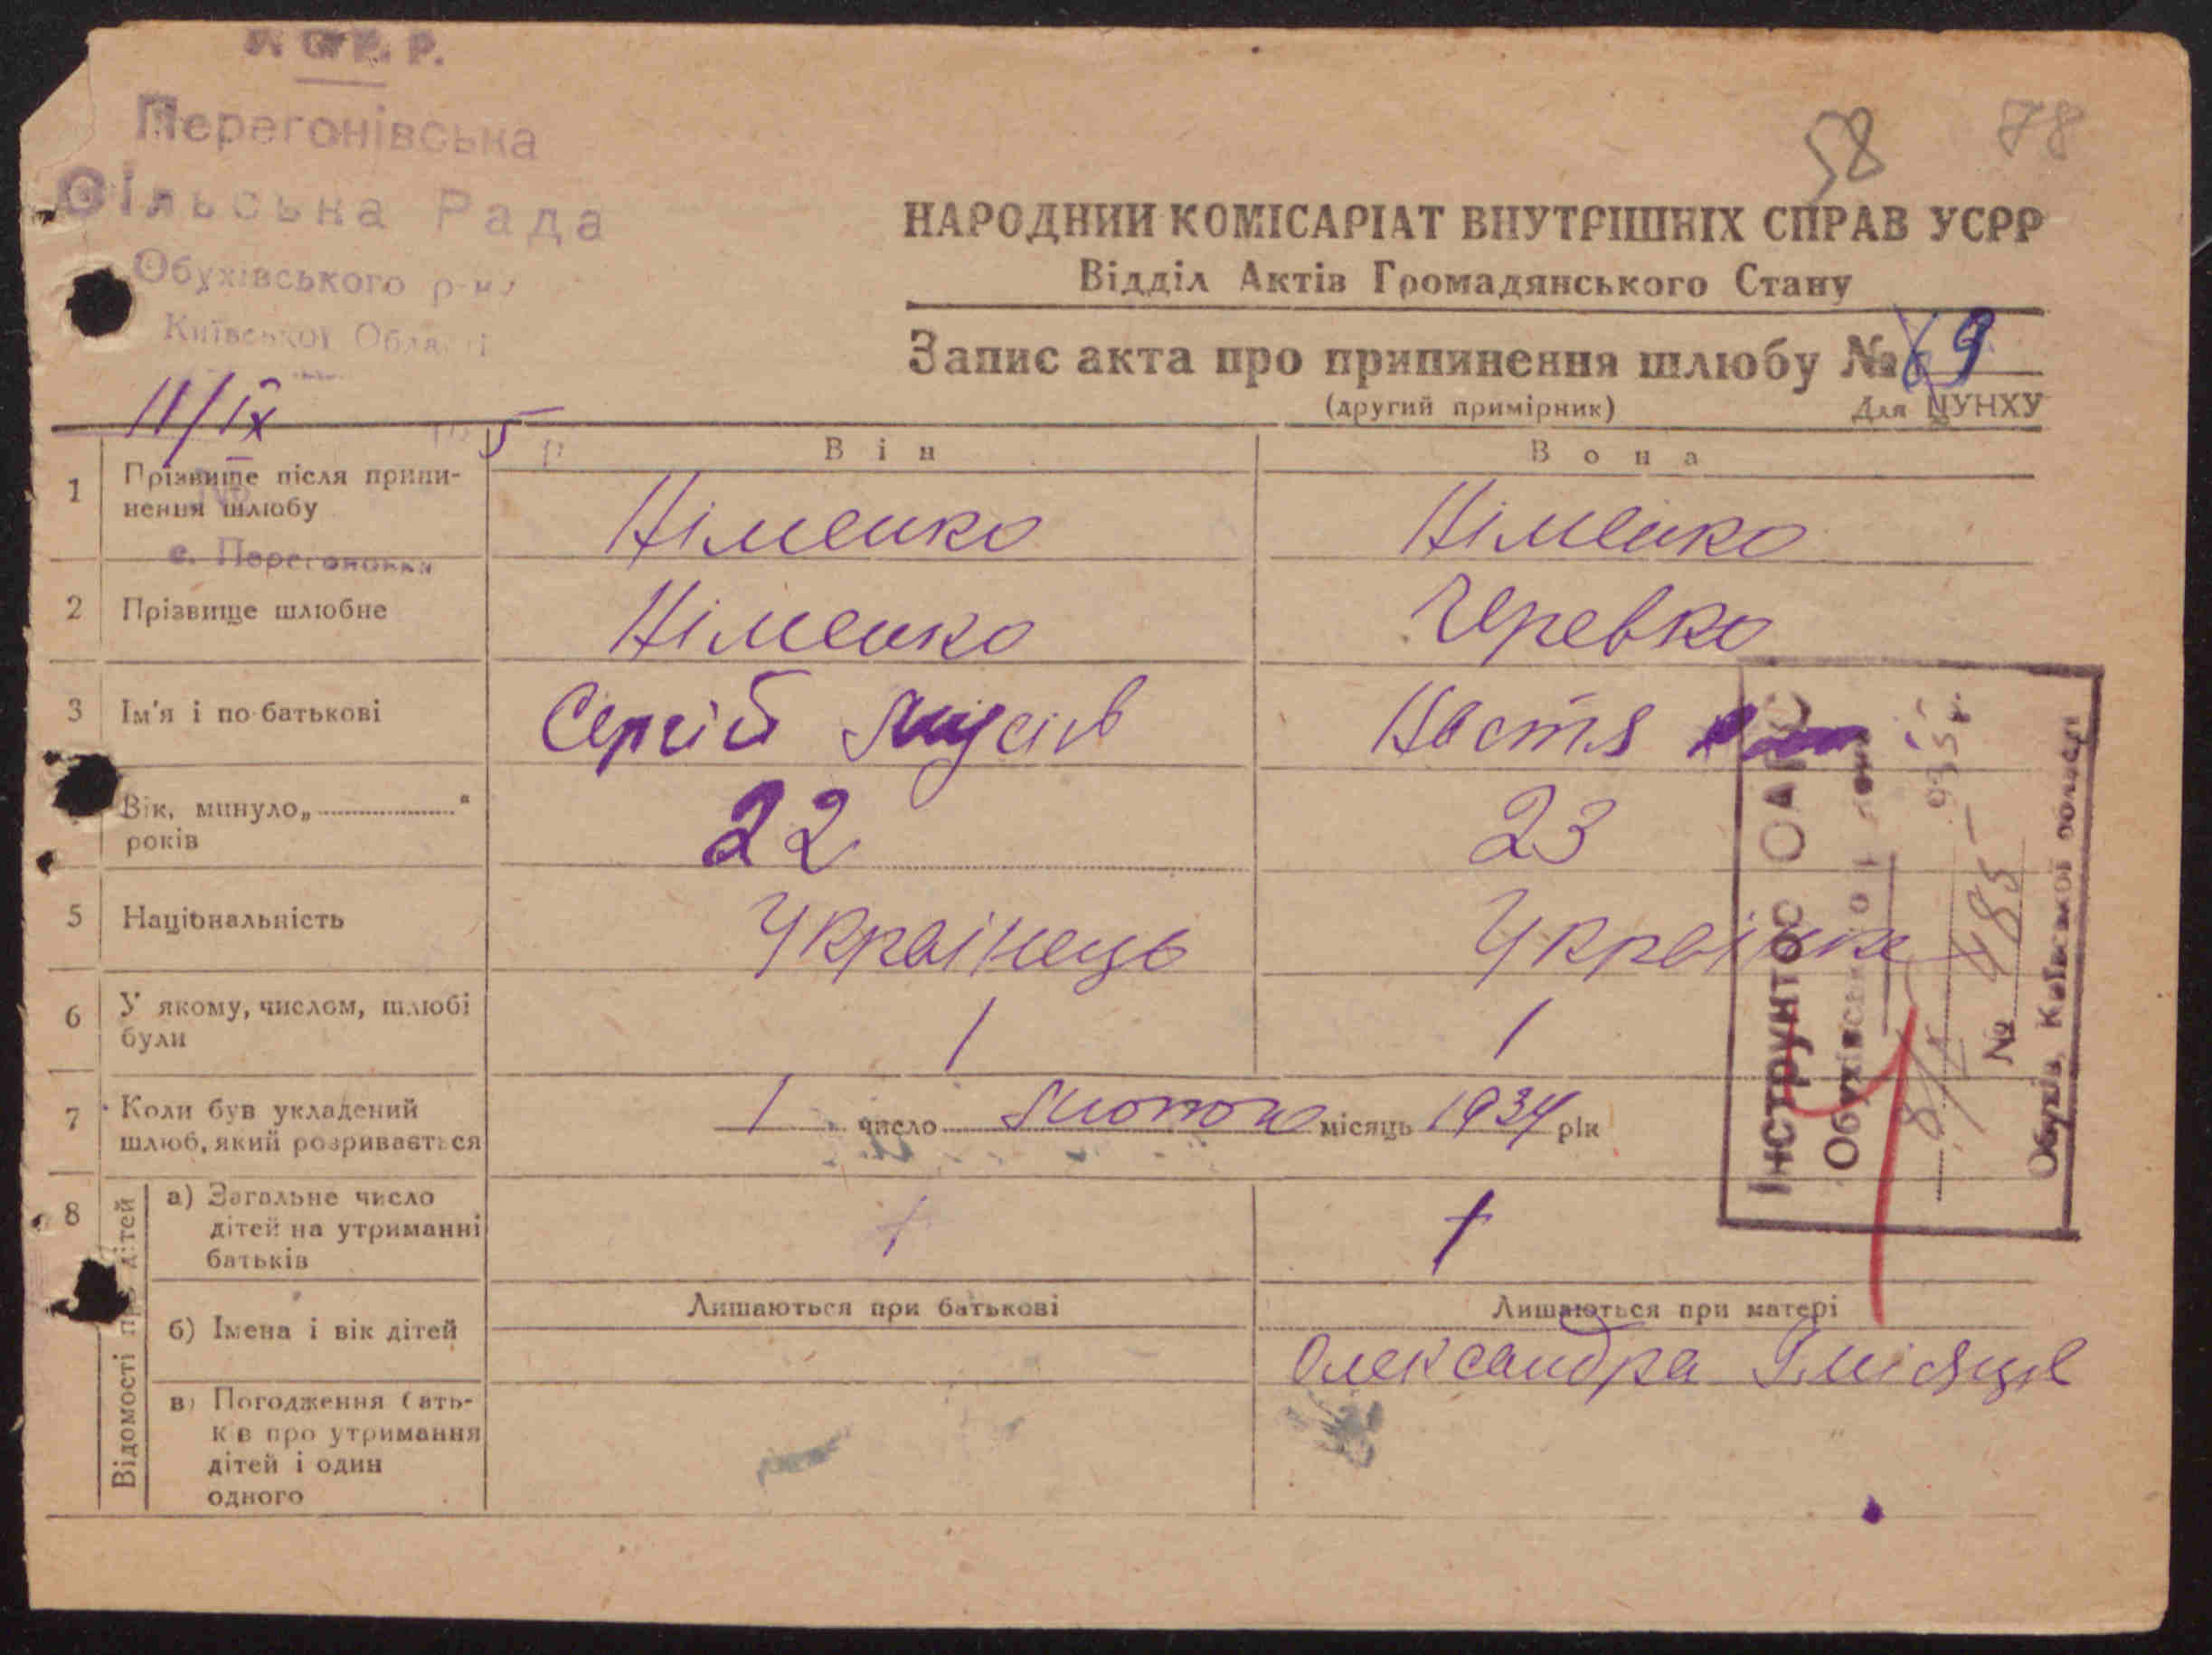 У. С. Р. Р.
Перегонівська
Сільська Рада
Обухівського р-ну
Київської Області
11/ІХ 5 р
с. Перегоновка
58 78
НАРОДНИЙ КОМІСАРІАТ ВНУТРІШНІХ СПРАВ УСРР
Відділ Актів Громадянського Стану
Запис акта про припинення шлюбу № 9
(другий примірник) Для ЦУНХУ
Він Вона
1 Прізвище після припинення шлюбу Німенко Німенко
2 Прізвище шлюбне Німенко Черевко
3 Ім'я і по-батькові Сергій Настя
Вік, минуло „ “ років 22 23
5 Національність Українець Українка
6 У якому, числом, шлюбі були 1 1
7 Коли був укладений шлюб, який розривається 1 число Лютого місяць 1934 рік
8 Відомості про дітей
а) Загальне число дітей на утриманні батьків
Лишаються при батькові Лишаються при матері
б) Імена і вік дітей Олександра місяця
в) Погодження батьків про утримання дітей і один одного
Інструктор ОАГС
Обухівського району
935 р.
№ 485
Обухів, Київської області